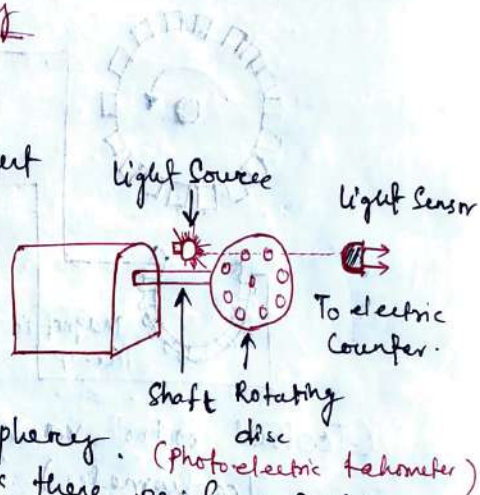 Light Source
Light Sensor
To electric
Counter.
Shaft Rotating
disc
phery.
(Photoelectric tahometer)
these